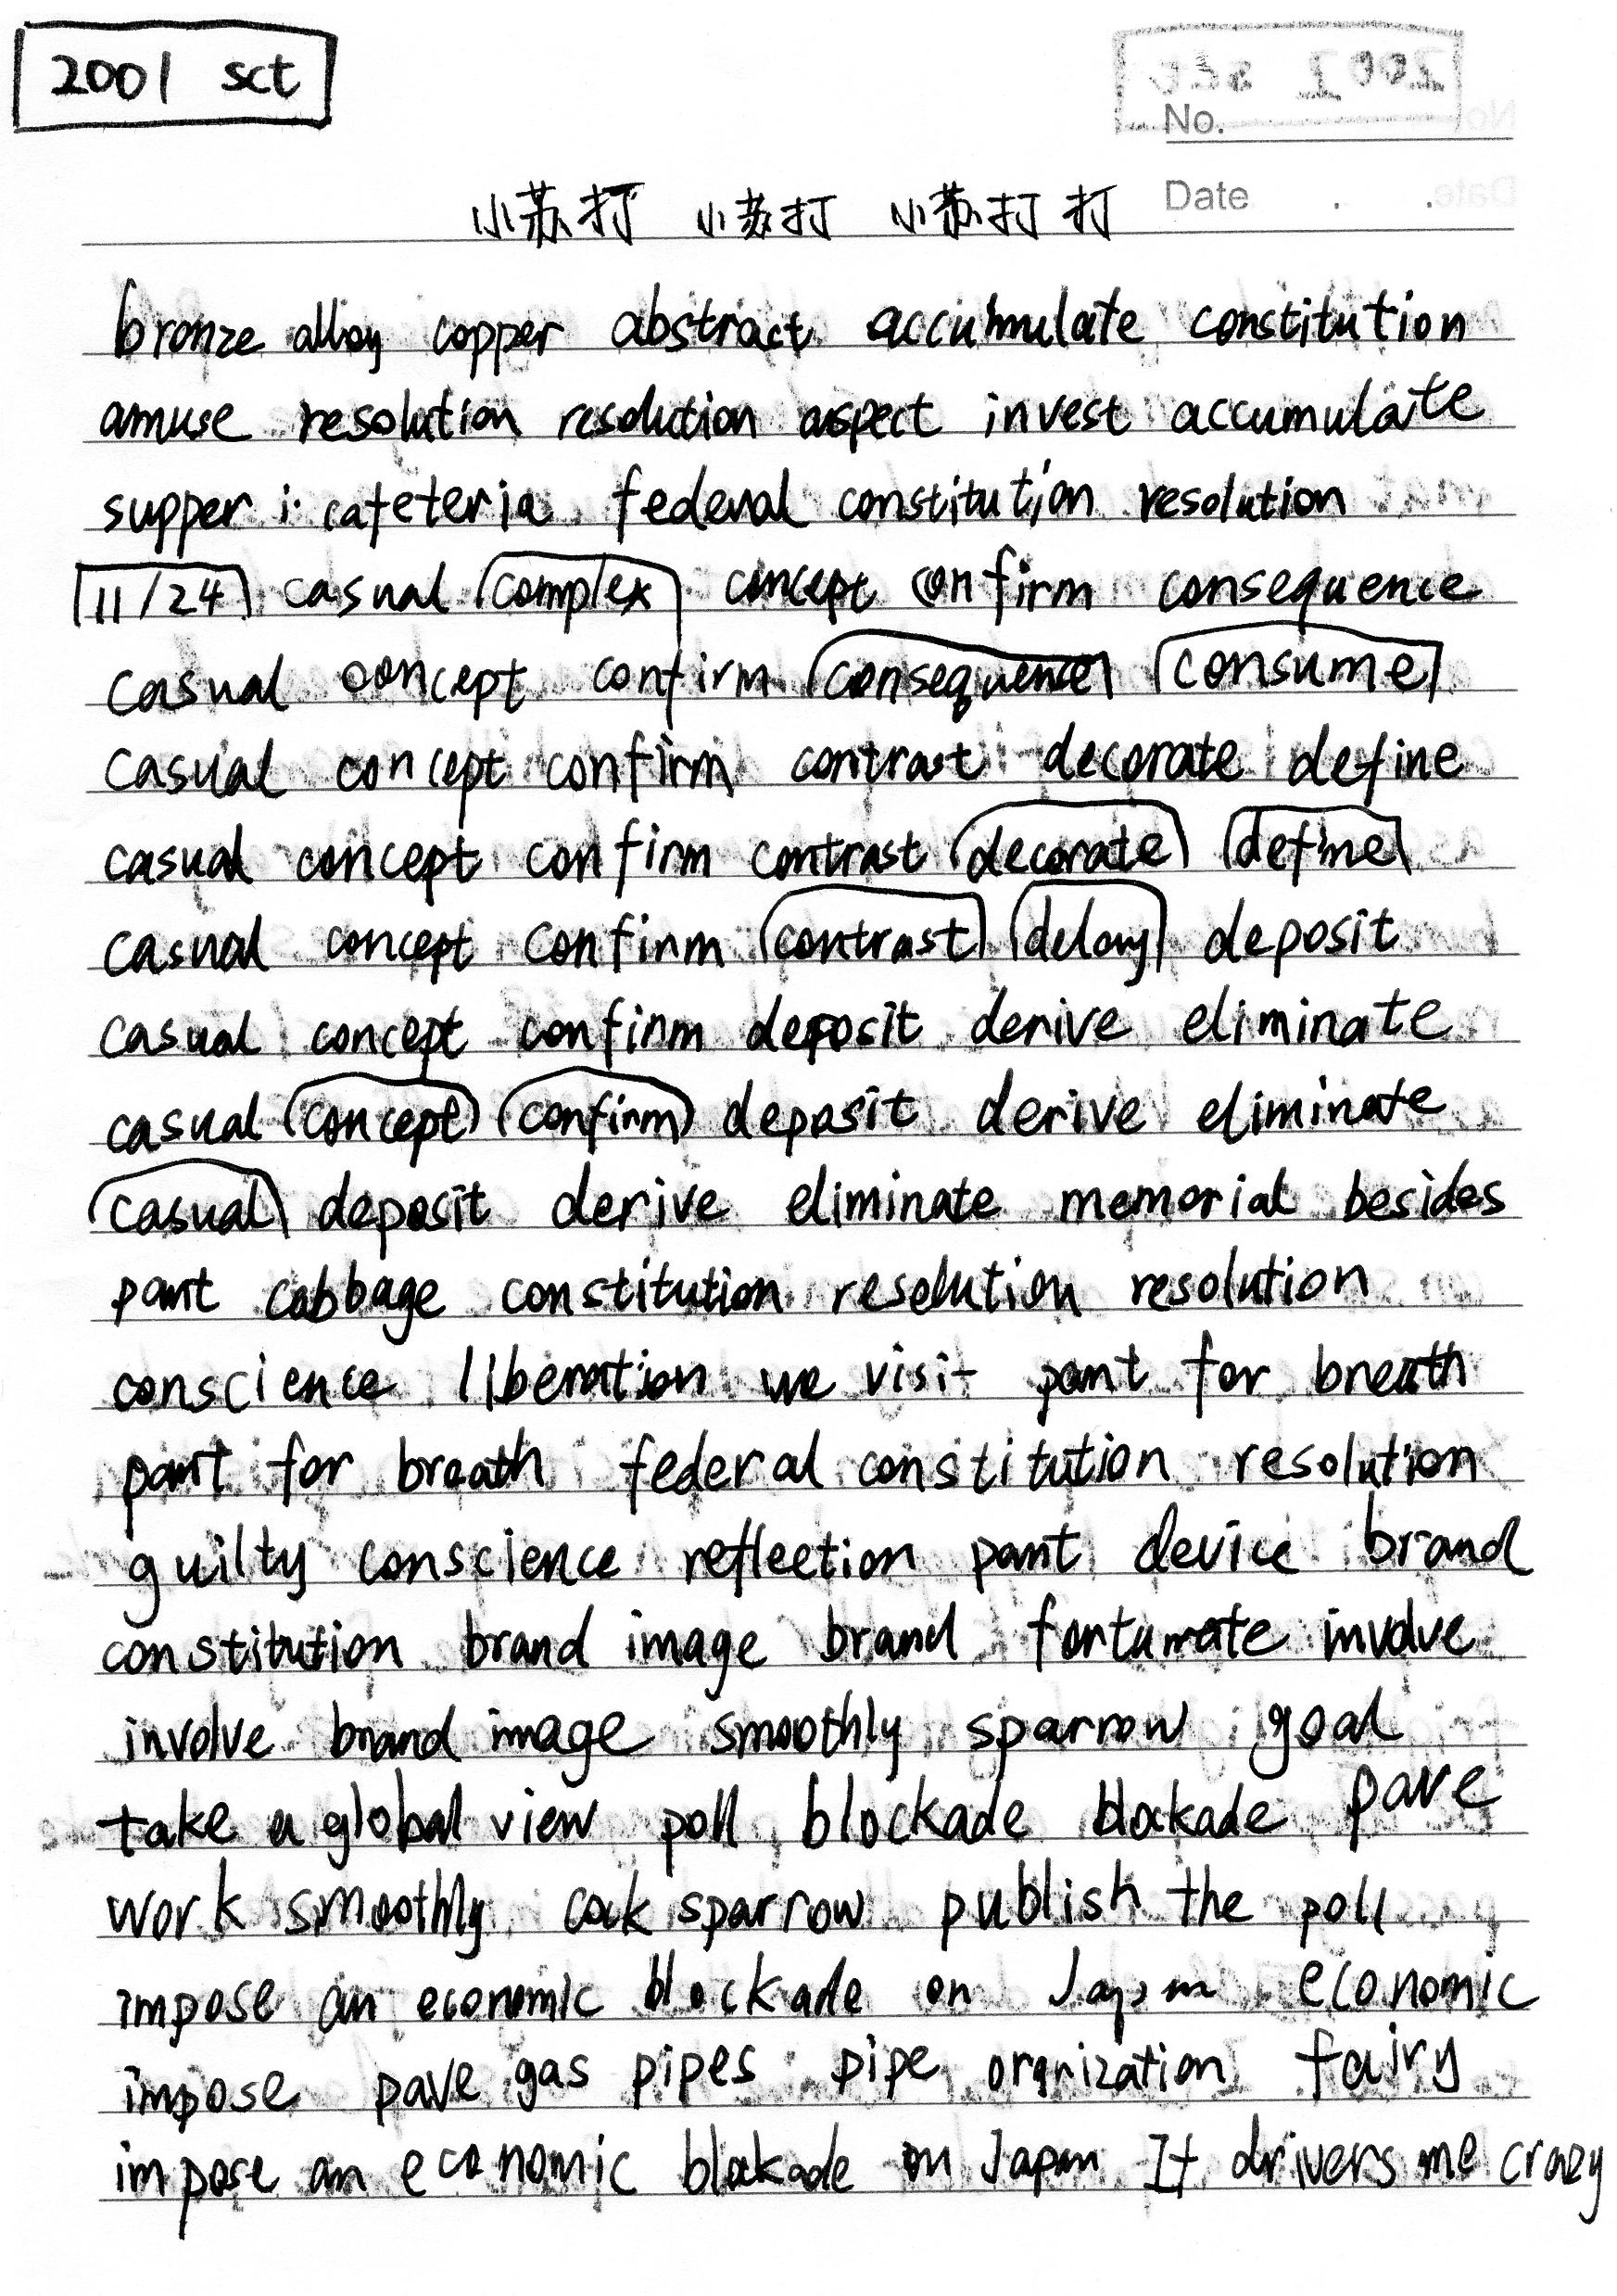 2001 sct
No.
Date
小苏打 小苏打 小苏打打
bronze alloy copper abstract accumulate constitution
amuse resolution resolution aspect invest accumulate
supper i cafeteria federal constitution resolution
11/24 casual complex concept confirm consequence
casual concept confirm consequence consume
casual concept confirm contrast decorate define
casual concept confirm contrast decorate define
casual concept confirm contrast delay deposit
casual concept confirm deposit derive eliminate
casual concept confirm deposit derive eliminate
casual deposit derive eliminate memorial besides
pant cabbage constitution resolution resolution
conscience liberation we visit pant for breath
pant for breath federal constitution resolution
guilty conscience reflection pant device brand
constitution brand image brand fortunate involve
involve brand image smoothly sparrow goal
take a global view poll blockade blockade pave
work smoothly cock sparrow publish the poll
impose an economic blockade on Japan economic
impose pave gas pipes pipe orgnization fairy
impose an economic blockade on Japan It drivers me crazy